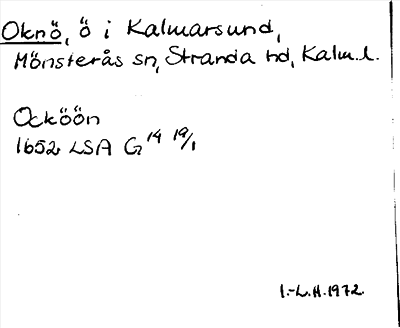 Oknö, ö i Kalmarsund,
Mönsterås sn, Stranda hd, Kalm.l.
Ocköön
1652 LSA G 14 19/1
I.-L.H.1972